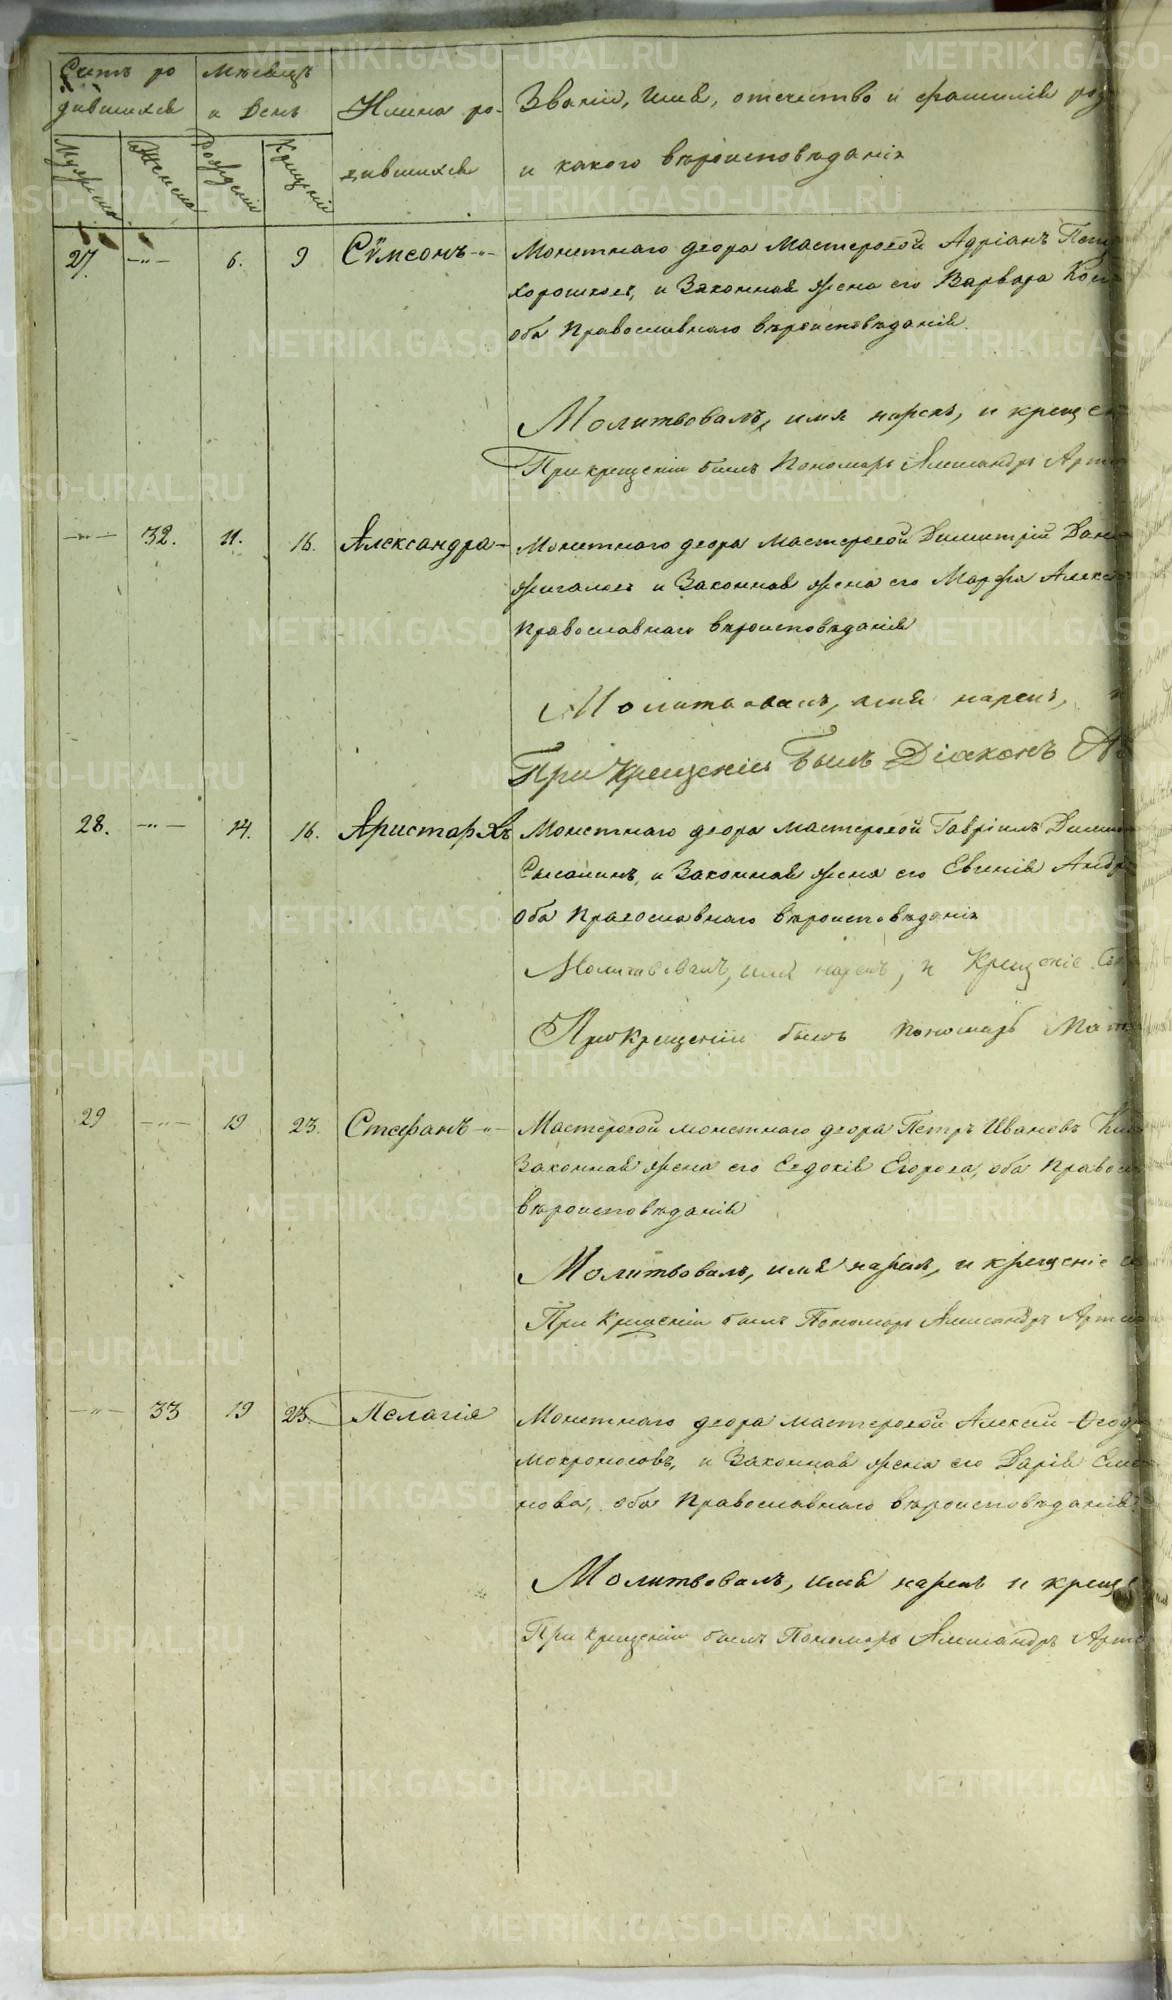 Счетъ ро
дившихся
Мѣсяцъ
и День
Имена ро-
дившихся
Званіе, имя, отчество и фамилія род
и какого вѣроисповѣданія
Мужеска
Женска
Рожденія
Крещенія
27. —"— 6. 9 Сѵмеонъ-"- Монетнаго двора мастеровой Адріанъ Пет
Хорошковъ, и Законная жена его Варвара Коз
оба Православнаго вѣроисповѣданія.
Молитвовалъ, имя нарекъ, и крещен
При крещеніи былъ Пономарь Александръ Арте
—"— 32. 11. 16. Александра— Монетнаго двора мастеровой Димитрій Дан
Жигаловъ и Законная жена его Марфа Алекс
Православнаго вѣроисповѣданія
Молитвовалъ, имя нарекъ,
При Крещеніи былъ Діаконъ
28. —"— 14. 16. Аристархъ Монетнаго двора мастеровой Гавріилъ Дими
и Законная жена его Евгенія Андр
оба Православнаго вѣроисповѣданія
Молитвовалъ, имя нарекъ, и Крещеніе
При Крещеніи былъ пономарь Мат
29 —"— 19 23. Стефанъ-"- Мастеровой монетнаго двора Петръ Ивановъ
Законная жена его Евдокія Егорова, оба Правос
вѣроисповѣданія
Молитвовалъ, имя нарекъ, и крещеніе
При Крещеніи былъ Пономарь Александръ Арте
—"— 33 19 23. Пелагія Монетнаго двора мастеровой Алексей Ѳеод
Мокроносовъ, и Законная жена его Дарія Сим
нова, оба Православнаго вѣроисповѣданія.
Молитвовалъ, имя нарекъ и крещ
При крещеніи былъ Пономарь Александръ Арте
METRIKI.GASO-URAL.RU